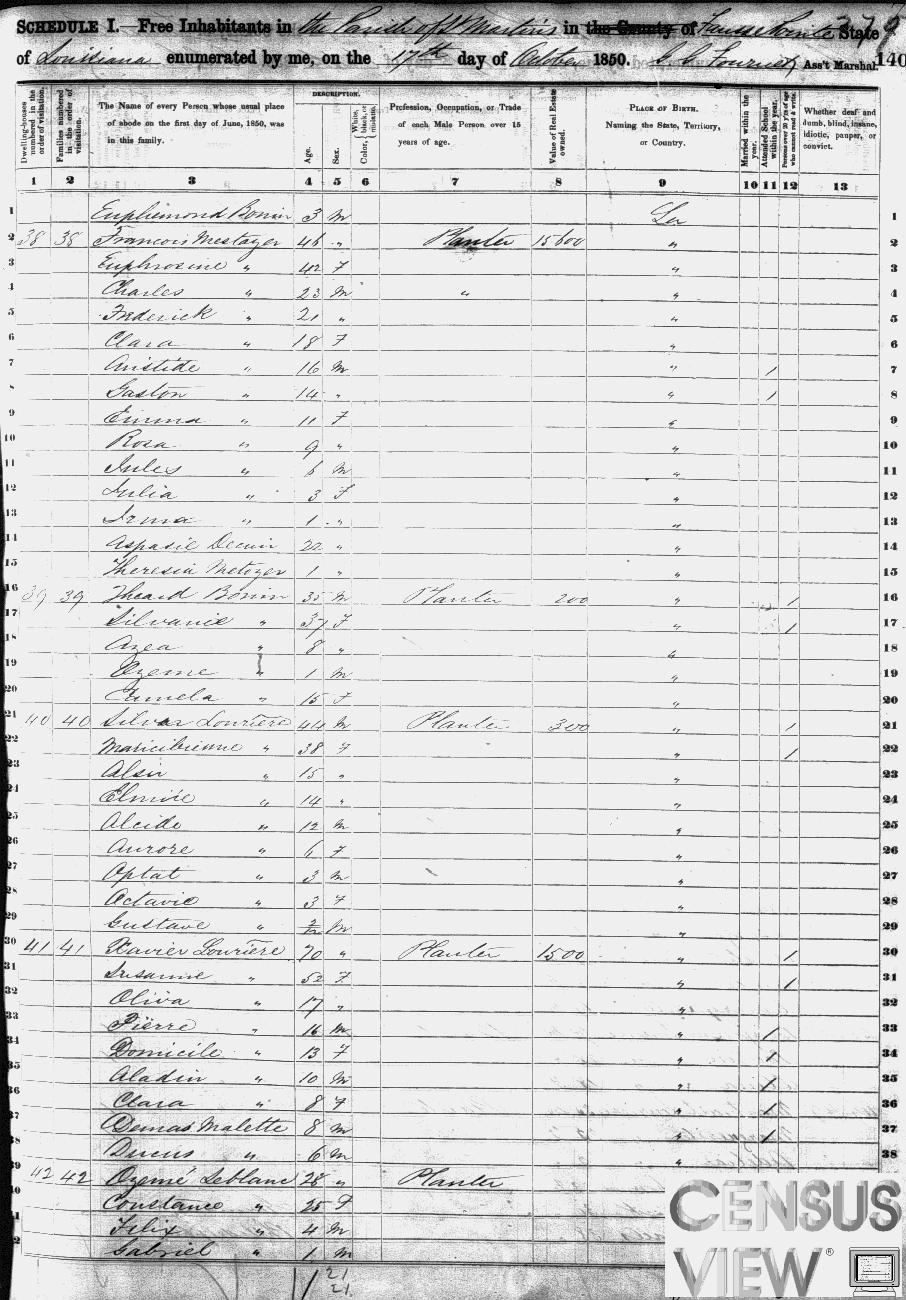 SCHEDULE I. Free Inhabitants in the Parish of St Martins in the County of Fausse Pointe State
of Louisiana enumerated by me, on the 17th day of October 1850. Ass't Marshal. 140
DESCRIPTION.
Dwelling-houses numbered in the order of visitation.
Families numbered in the order of visitation.
The Name of every Person whose usual place of abode on the first day of June, 1850, was in this family.
Age.
Sex.
Color, White, black, or mulatto.
Profession, Occupation, or Trade of each Male Person over 15 years of age.
Value of Real Estate owned.
PLACE OF BIRTH. Naming the State, Territory, or Country.
Married within the year.
Attended School within the year.
Persons over 20 y'rs of age who cannot read & write.
Whether deaf and dumb, blind, insane, idiotic, pauper, or convict.
1 2 3 4 5 6 7 8 9 10 11 12 13
1 Euphemond Bonin 3 M La 1
2 38 38 Francois Mestayer 46 " Planter 15600 " 2
3 Euphrosine " 42 F " 3
4 Charles " 23 M " " 4
5 Frederick " 21 " " 5
6 Clara " 18 F " 6
7 Aristide " 16 M " / 7
8 Gaston " 14 " " / 8
9 Emma " 11 F " 9
10 Rosa " 9 " " 10
11 Jules " 6 M " 11
12 Julia " 3 F " 12
13 Irma " 1 " " 13
14 Aspasie Decuir 22 " " 14
15 Theresia Metoyer 1 " " 15
16 39 39 Theard Bonin 35 M Planter 200 " / 16
17 Silvanie " 37 F " / 17
18 Azea " 8 " " 18
19 Ozeme " 1 M " 19
20 Camela " 15 F " 20
21 40 40 Silvar Lourière 44 M Planter 300 " / 21
22 Maricibienne " 38 F " / 22
23 Alsir " 15 " " 23
24 Elmire " 14 " " 24
25 Alcide " 12 M " 25
26 Aurore " 6 F " 26
27 Optat " 3 M " 27
28 Octavie " 3 F " 28
29 Gustave " 2/12 M " 29
30 41 41 Xavier Lourière 70 " Planter 1500 " / 30
31 Susanne " 52 F " / 31
32 Oliva " 17 " " 32
33 Pierre " 16 M " / 33
34 Domicile " 13 F " / 34
35 Aladin " 10 M " / 35
36 Clara " 8 F " / 36
37 Demas Malette 8 M " / 37
38 Ducus " 6 M " 38
39 42 42 Ozemé Leblanc 28 " Planter
40 Constance " 25 F
Felix " 4 M
Gabriel " 1 M
21
21
CENSUS
VIEW®